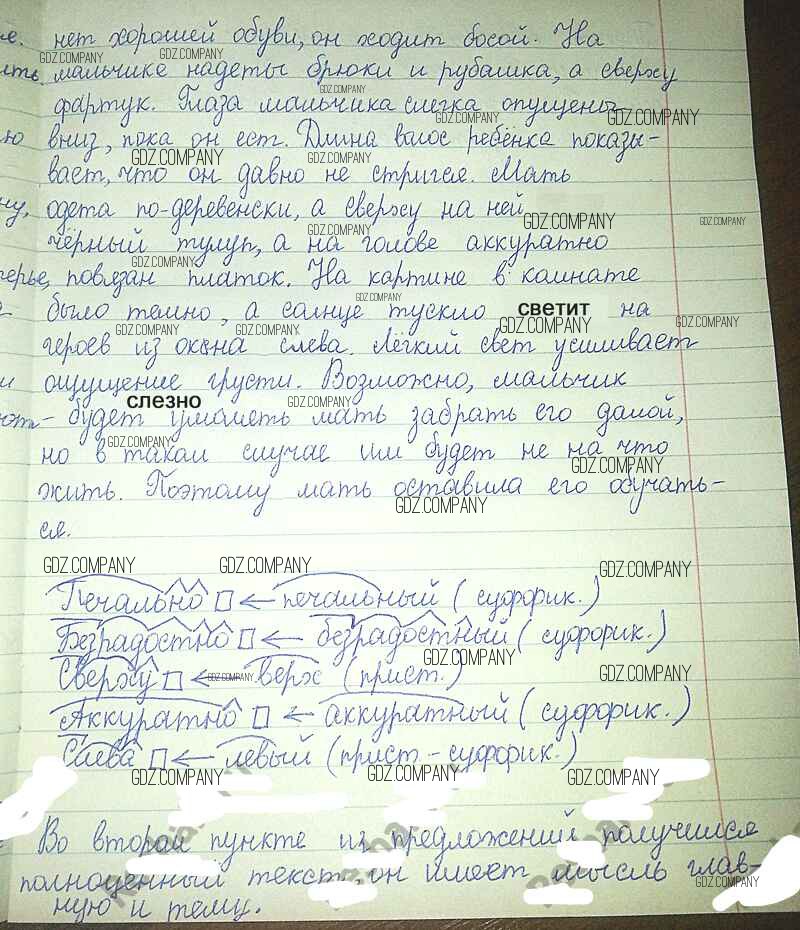 е. нет хорошей обуви, он ходит босой. На
ить мальчике надеты брюки и рубашка, а сверху
фартук. Глаза мальчика слегка опущены
ю вниз, пока он ест. Длина волос ребёнка показы-
вает, что он давно не стригся. Мать
ну, одета по-деревенски, а сверху на ней
чёрный тулуп, а на голове аккуратно
герье, повязан платок. На картине в комнате
было темно, а солнце тускло светит на
героев из окна слева. Лёгкий свет усиливает
и ощущение грусти. Возможно, мальчик
слезно
будет умолять мать забрать его домой,
но в таком случае им будет не на что
жить. Поэтому мать оставила его обучать-
ся.
Печально ← печальный (суффик.)
Безрадостно ← безрадостный (суффик.)
Сверху ← верх (прист.)
Аккуратно ← аккуратный (суффик.)
Слева ← левый (прист-суффик.)
Во втором пункте из предложений получился
полноценный текст, он имеет мысль глав-
ную и тему.
GDZ.COMPANY